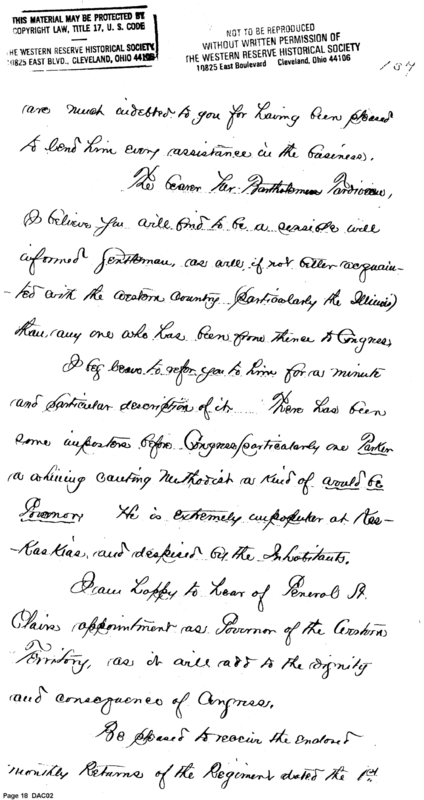 THIS MATERIAL MAY BE PROTECTED BY
COPYRIGHT LAW, TITLE 17, U. S. CODE
THE WESTERN RESERVE HISTORICAL SOCIETY
10825 EAST BLVD., CLEVELAND, OHIO 44106
NOT TO BE REPRODUCED
WITHOUT WRITTEN PERMISSION OF
THE WESTERN RESERVE HISTORICAL SOCIETY
10825 East Boulevard Cleveland, Ohio 44106
are much indebted to you for having been pleased
to lend him every assistance in the business.
The bearer Mr. Bartholomew Tardiveau,
I believe you will find to be a sensible well
informed Gentleman, as well if not better acquain-
-ted with the western country (particularly the Illinois)
than any one who has been from thence to Congress
I beg leave to refer you to him for a minute
and particular description of it. There has been
some imposters before Congress, particularly one Parker
a whining canting Methodist a kind of would be
Governor. He is extremely unpopular at Kas-
-kaskias, and despised by the Inhabitants.
I am happy to hear of General St.
Clairs appointment as Governor of the Western
Territory, as it will add to the dignity
and consequence of Congress.
Be pleased to receive the enclosed
monthly Returns of the Regiment dated the 1st
Page 18 DAC02